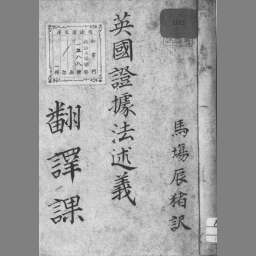 馬場辰猪訳
英國證據法述義
翻譯課